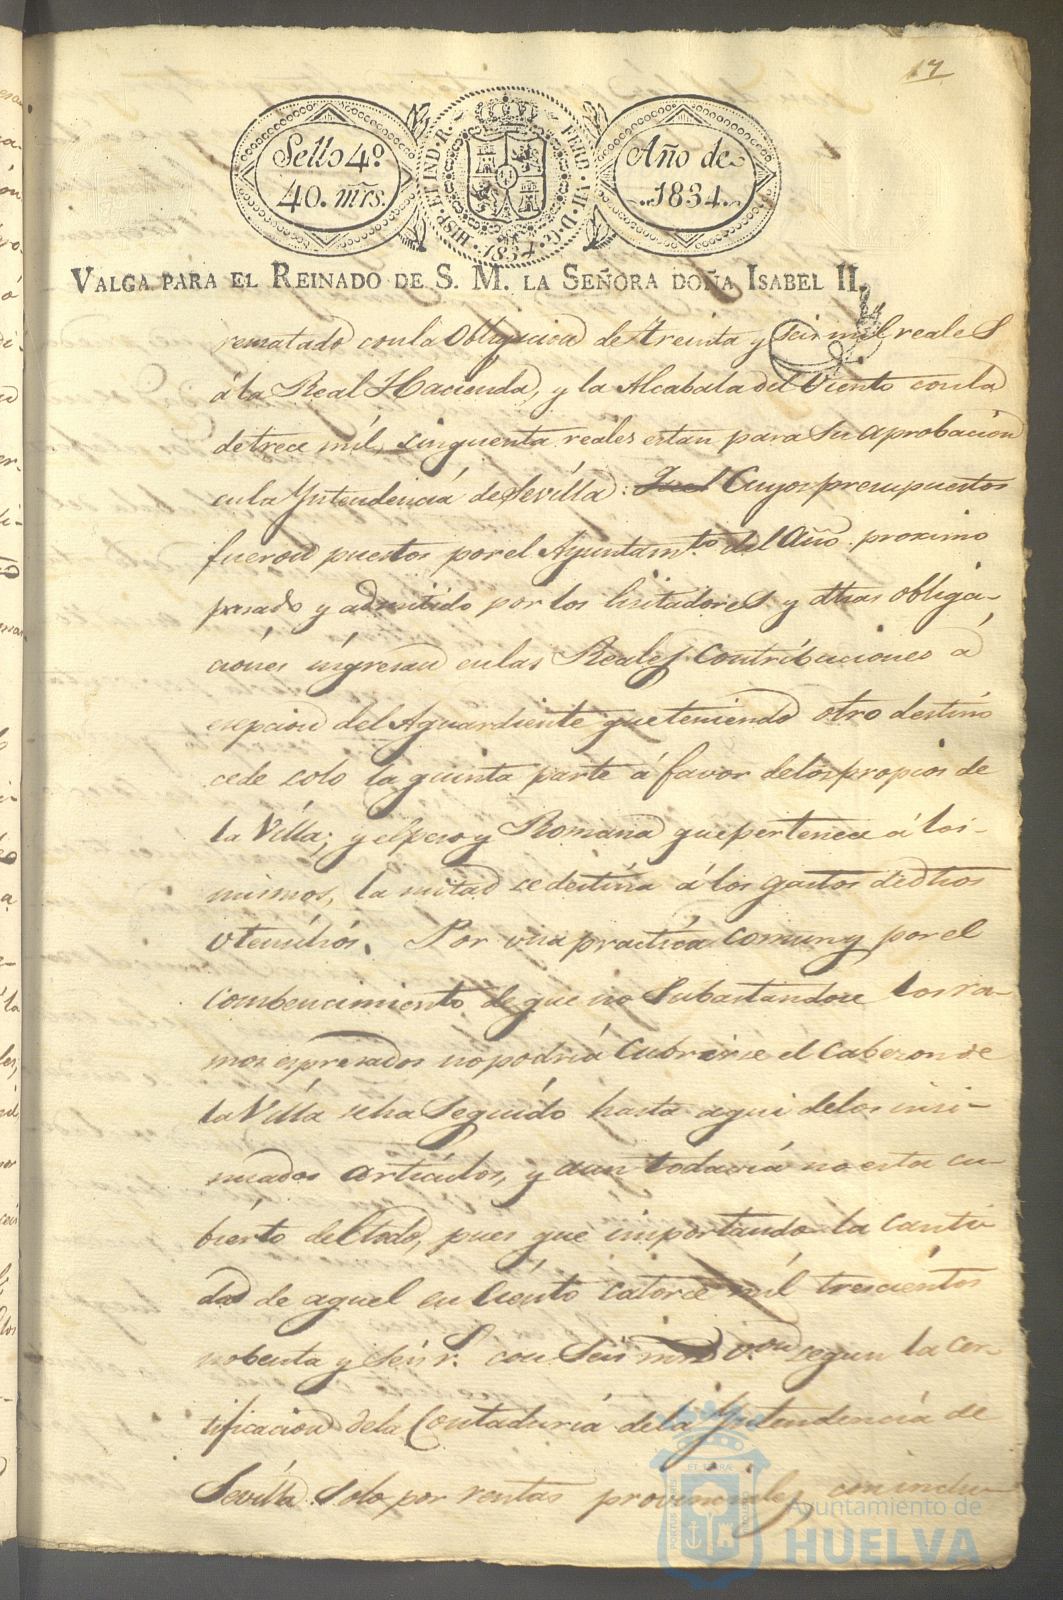 17
Sello 4º
40. mrs.
HISP. ET IND. R. FERD. VII. D. G. 1834.
Año de
1834.
VALGA PARA EL REINADO DE S. M. LA SEÑORA DOÑA ISABEL II.
rematado con la Obligacion de treinta y seis mil reales
á la Real Hacienda, y la Alcabala del Viento con la
de trece mil, cinquenta reales estan para su aprobacion
en la Yntendencia de Sevilla: Cuyos presupuestos
fueron puestos por el Ayuntamto. del Año proximo
pasado y admitido por los licitadores y dhas obliga-
ciones ingresan en las Reales Contribuciones á
esepcion del Aguardiente que teniendo otro destino
cede solo la quinta parte á favor de los propios de
la Villa; y el peso y Romana que pertenece á los
mismos, la mitad se destina á los gastos de dhos
Utensilios. Por una practica comun y por el
combencimiento de que no Subastandose los ra-
mos espresados no podria Cubrirse el Cabezon de
la Villa se ha Seguido hasta aqui de los insi-
nuados articulos, y aun todavia no esta cu-
bierto del todo, pues que importando la canti
dad de aquel en Ciento Catorce mil trescientos
nobenta y Seis r. con Seis mrs von. segun la cer-
tificacion de la Contaduria de la Yntendencia de
Sevilla Solo por rentas provinciales con inclu-
Ayuntamiento de
HUELVA